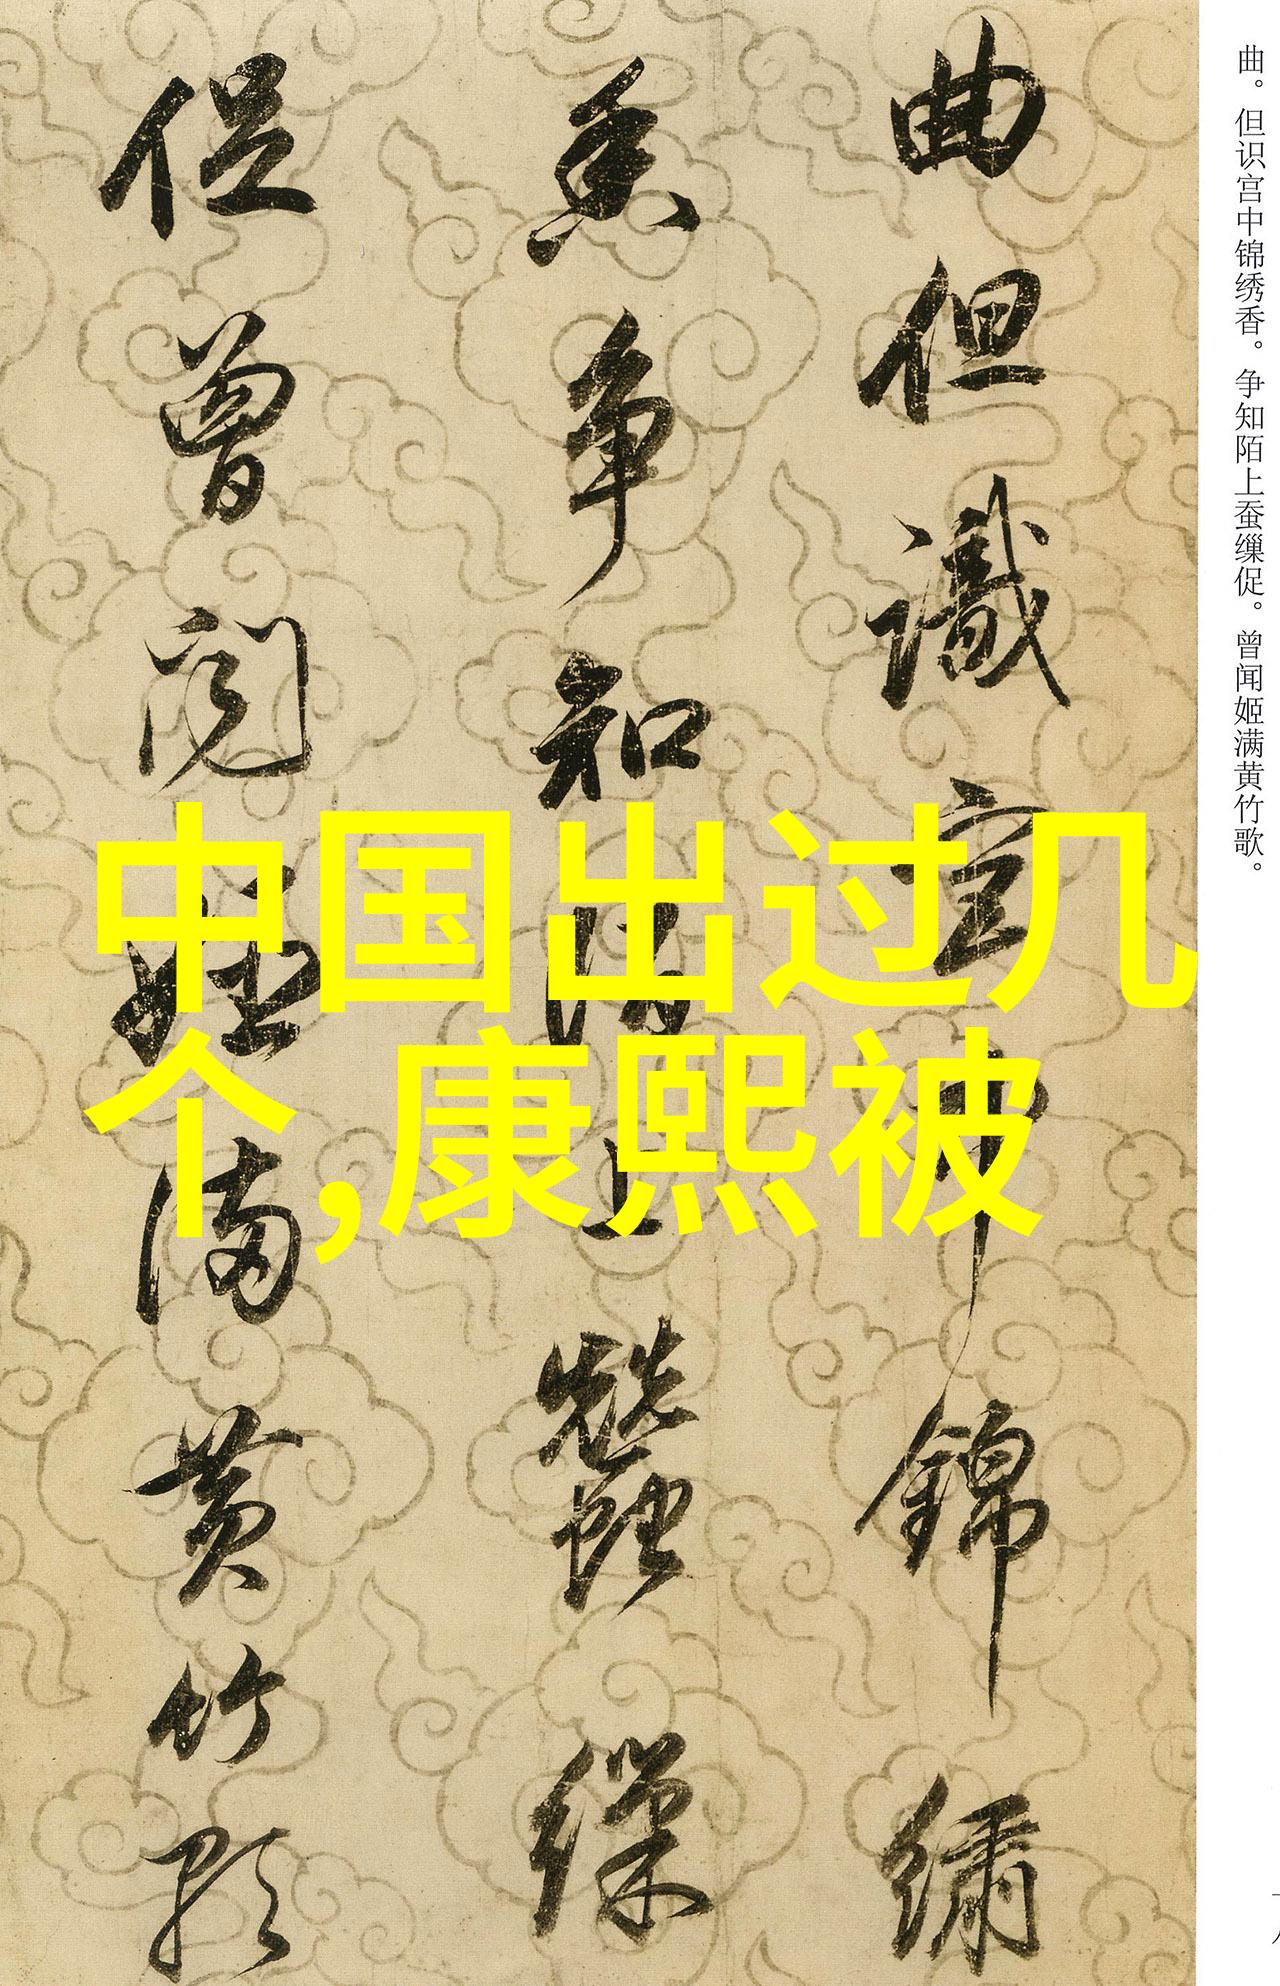 曲。但识宫中锦绣香。争知陌上蚕缫促。曾闻姬满黄竹歌。
曲但識宮中錦繡
香争知陌上蠶繅
促曾闻姬满黄竹歌
中国出过几
个,康熙被